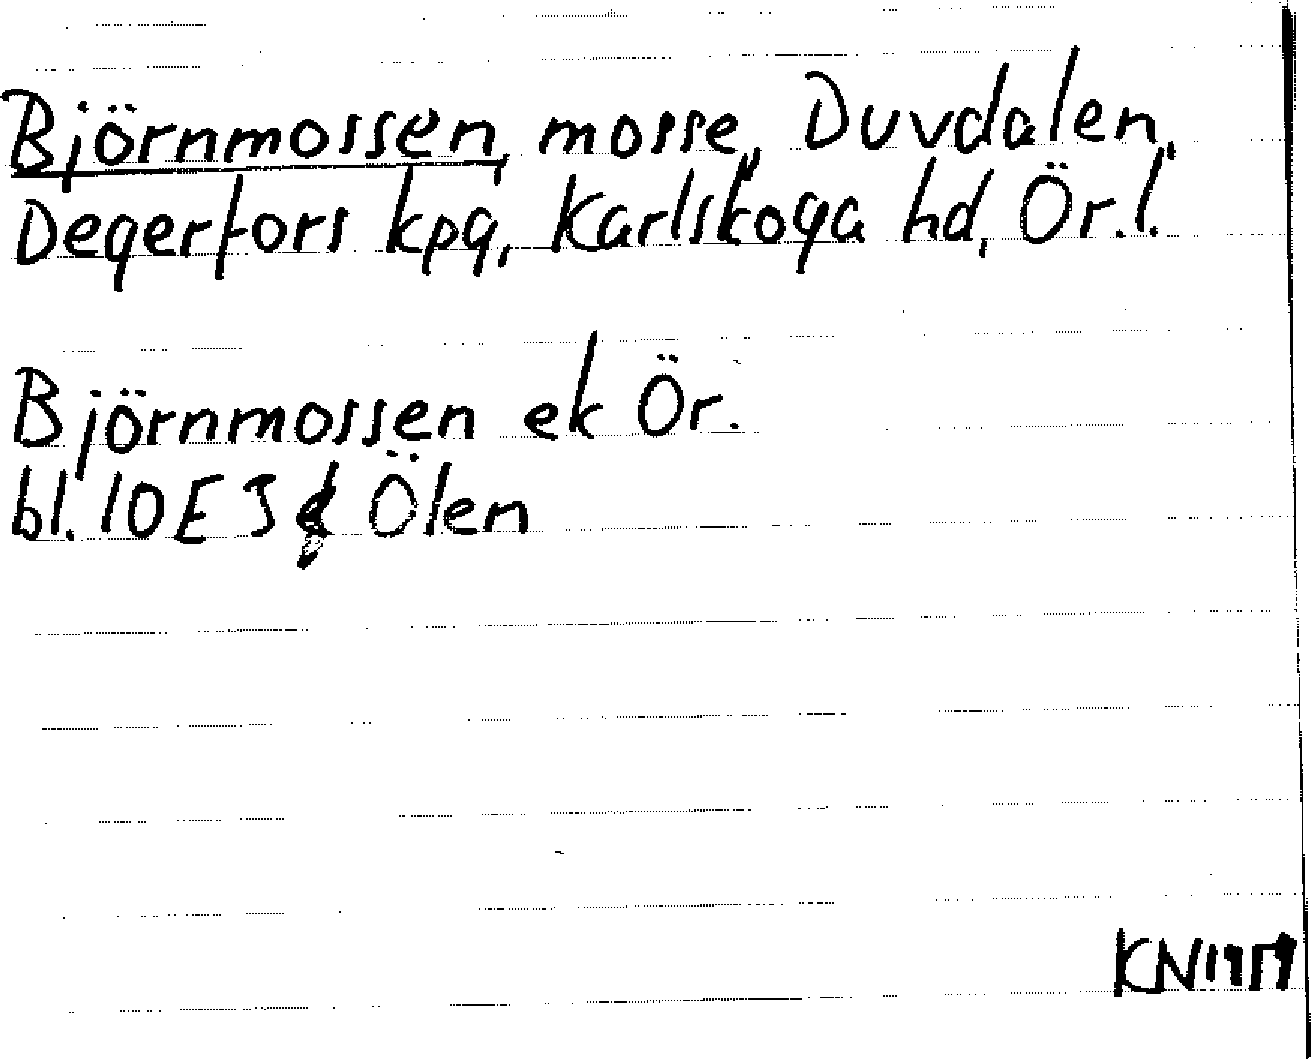 Björnmossen, mosse, Duvdalen,
Degerfors kpg, Karlskoga hd, Ör.l.
Björnmossen ek Ör.
bl. 10E3d Ölen